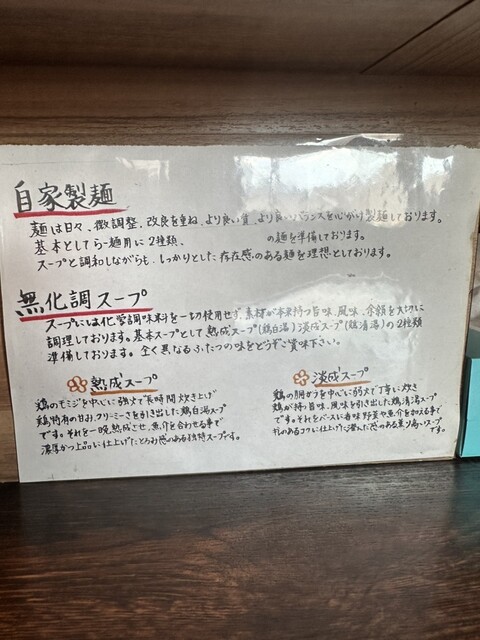 自家製麺
麺は日々、微調整、改良を重ね、より良い質、より良いバランスを心がけ製麺しております。
基本としてらー麺用に2種類、 の麺を準備しております。
スープと調和しながらも、しっかりとした存在感のある麺を理想としております。
無化調スープ
スープには化学調味料を一切使用せず、素材が本来持つ旨味、風味、余韻を大切に
調理しております。基本スープとして熟成スープ(鶏白湯)淡成スープ(鶏清湯)の2種類
準備しております。全く異なるふたつの味をどうぞご賞味下さい。
熟成スープ
鶏のモミジを中心に強火で長時間炊き上げ
鶏特有の甘み、クリーミーさを引き出した鶏白湯スープ
です。それを一晩熟成させ、魚介を合わせる事で
濃厚かつ上品に仕上げたとろみ感のある独特スープです。
淡成スープ
鶏の胴がらを中心に弱火で丁寧に炊き
鶏が持つ旨味、風味を引き出した鶏清湯スープ
です。それをベースに香味野菜や魚介を加える事で
コクに仕上げた澄んだ感のある薫り高いスープ
です。